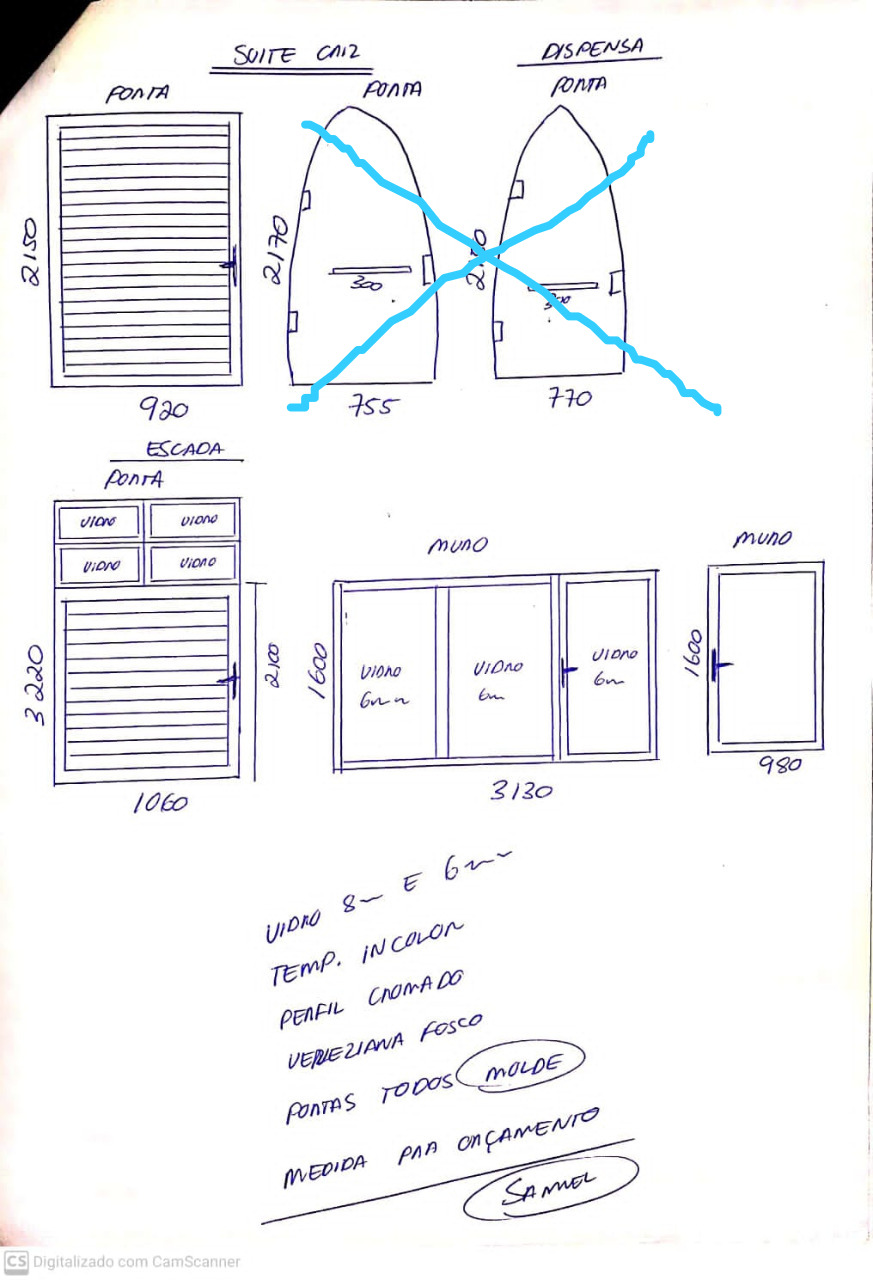 SUITE CAIZ
DISPENSA
PORTA
PORTA
PORTA
2150
2170
300
300
920
755
770
ESCADA
PORTA
VIDRO
VIDRO
VIDRO
VIDRO
3220
2100
1060
MURO
1600
VIDRO
6mm
VIDRO
6m
VIDRO
6m
3130
MURO
1600
980
VIDRO 8m E 6mm
TEMP. INCOLOR
PERFIL CROMADO
VENEZIANA FOSCO
PORTAS TODOS MOLDE
MEDIDA PRA ORÇAMENTO
SAMUEL
CS Digitalizado com CamScanner